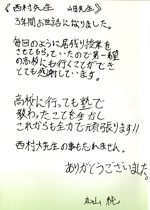 《西村先生 山田先生》
3年間お世話になりました。
毎日のように居残り授業を
させてもらっていたので第一希望
の高校にも行くことができて
とても感謝しています。
高校に行っても塾で
教わったことを生かし
これからも全力で頑張ります!!
西村大先生の事も忘れません。
ありがとうございました。